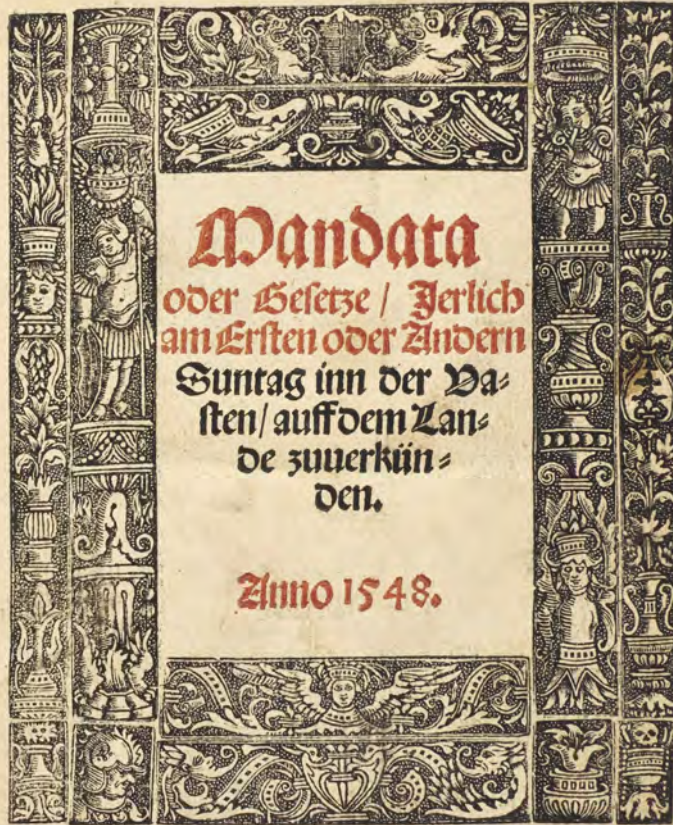 Mandata
oder Gesetze / Jerlich
am Ersten oder Andern
Suntag inn der Va⸗
sten / auff dem Lan⸗
de zuuerkün⸗
den.
Anno 1548.